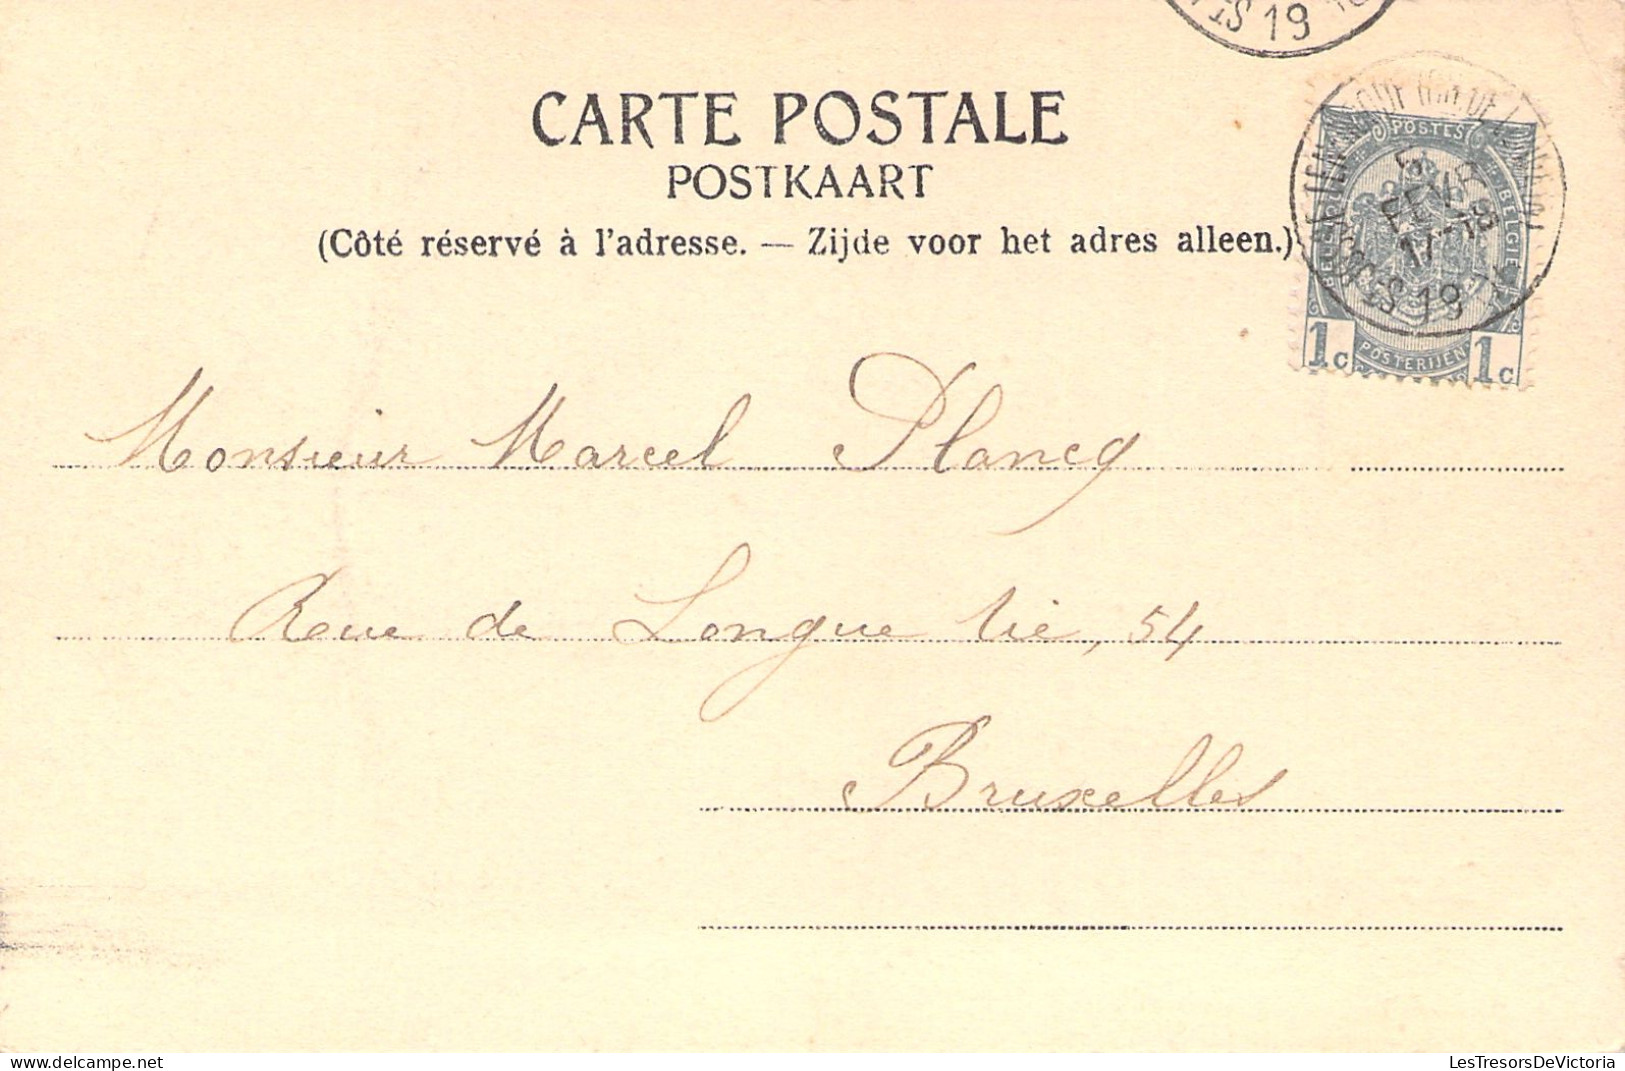 CARTE POSTALE
POSTKAART
(Côté réservé à l'adresse. — Zijde voor het adres alleen.)
19
POSTES
BELGIQUE
BELGIE
FEVR
17-18
19
1c POSTERIJEN 1c
Monsieur Marcel Plancq
Rue de Longue Vie, 54
Bruxelles
delcampe.net
LesTresorsDeVictoria